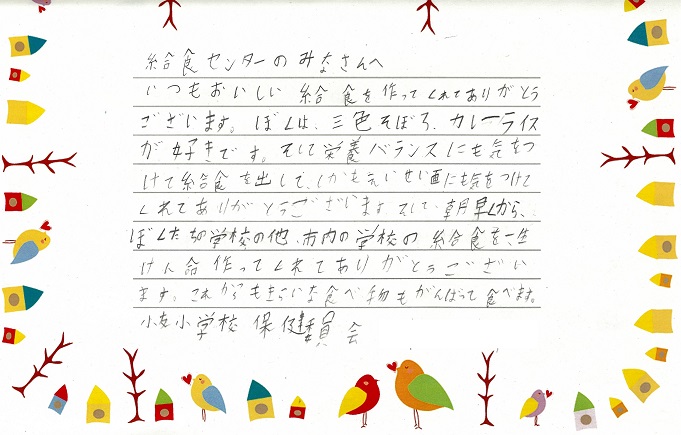 給食センターのみなさんへ
いつもおいしい給食を作ってくれてありがとう
ございます。ぼくは、三色そぼろ、カレーライス
が好きです。そして栄養バランスにも気をつ
けて給食を出して、しかもえいせい面にも気をつけて
くれてありがとうございます。そして、朝早くから、
ぼくたちの学校の他、市内の学校の給食を一生
けん命作ってくれてありがとうござい
ます。これからもきらいな食べ物もがんばって食べます。
小学校 保健委員会